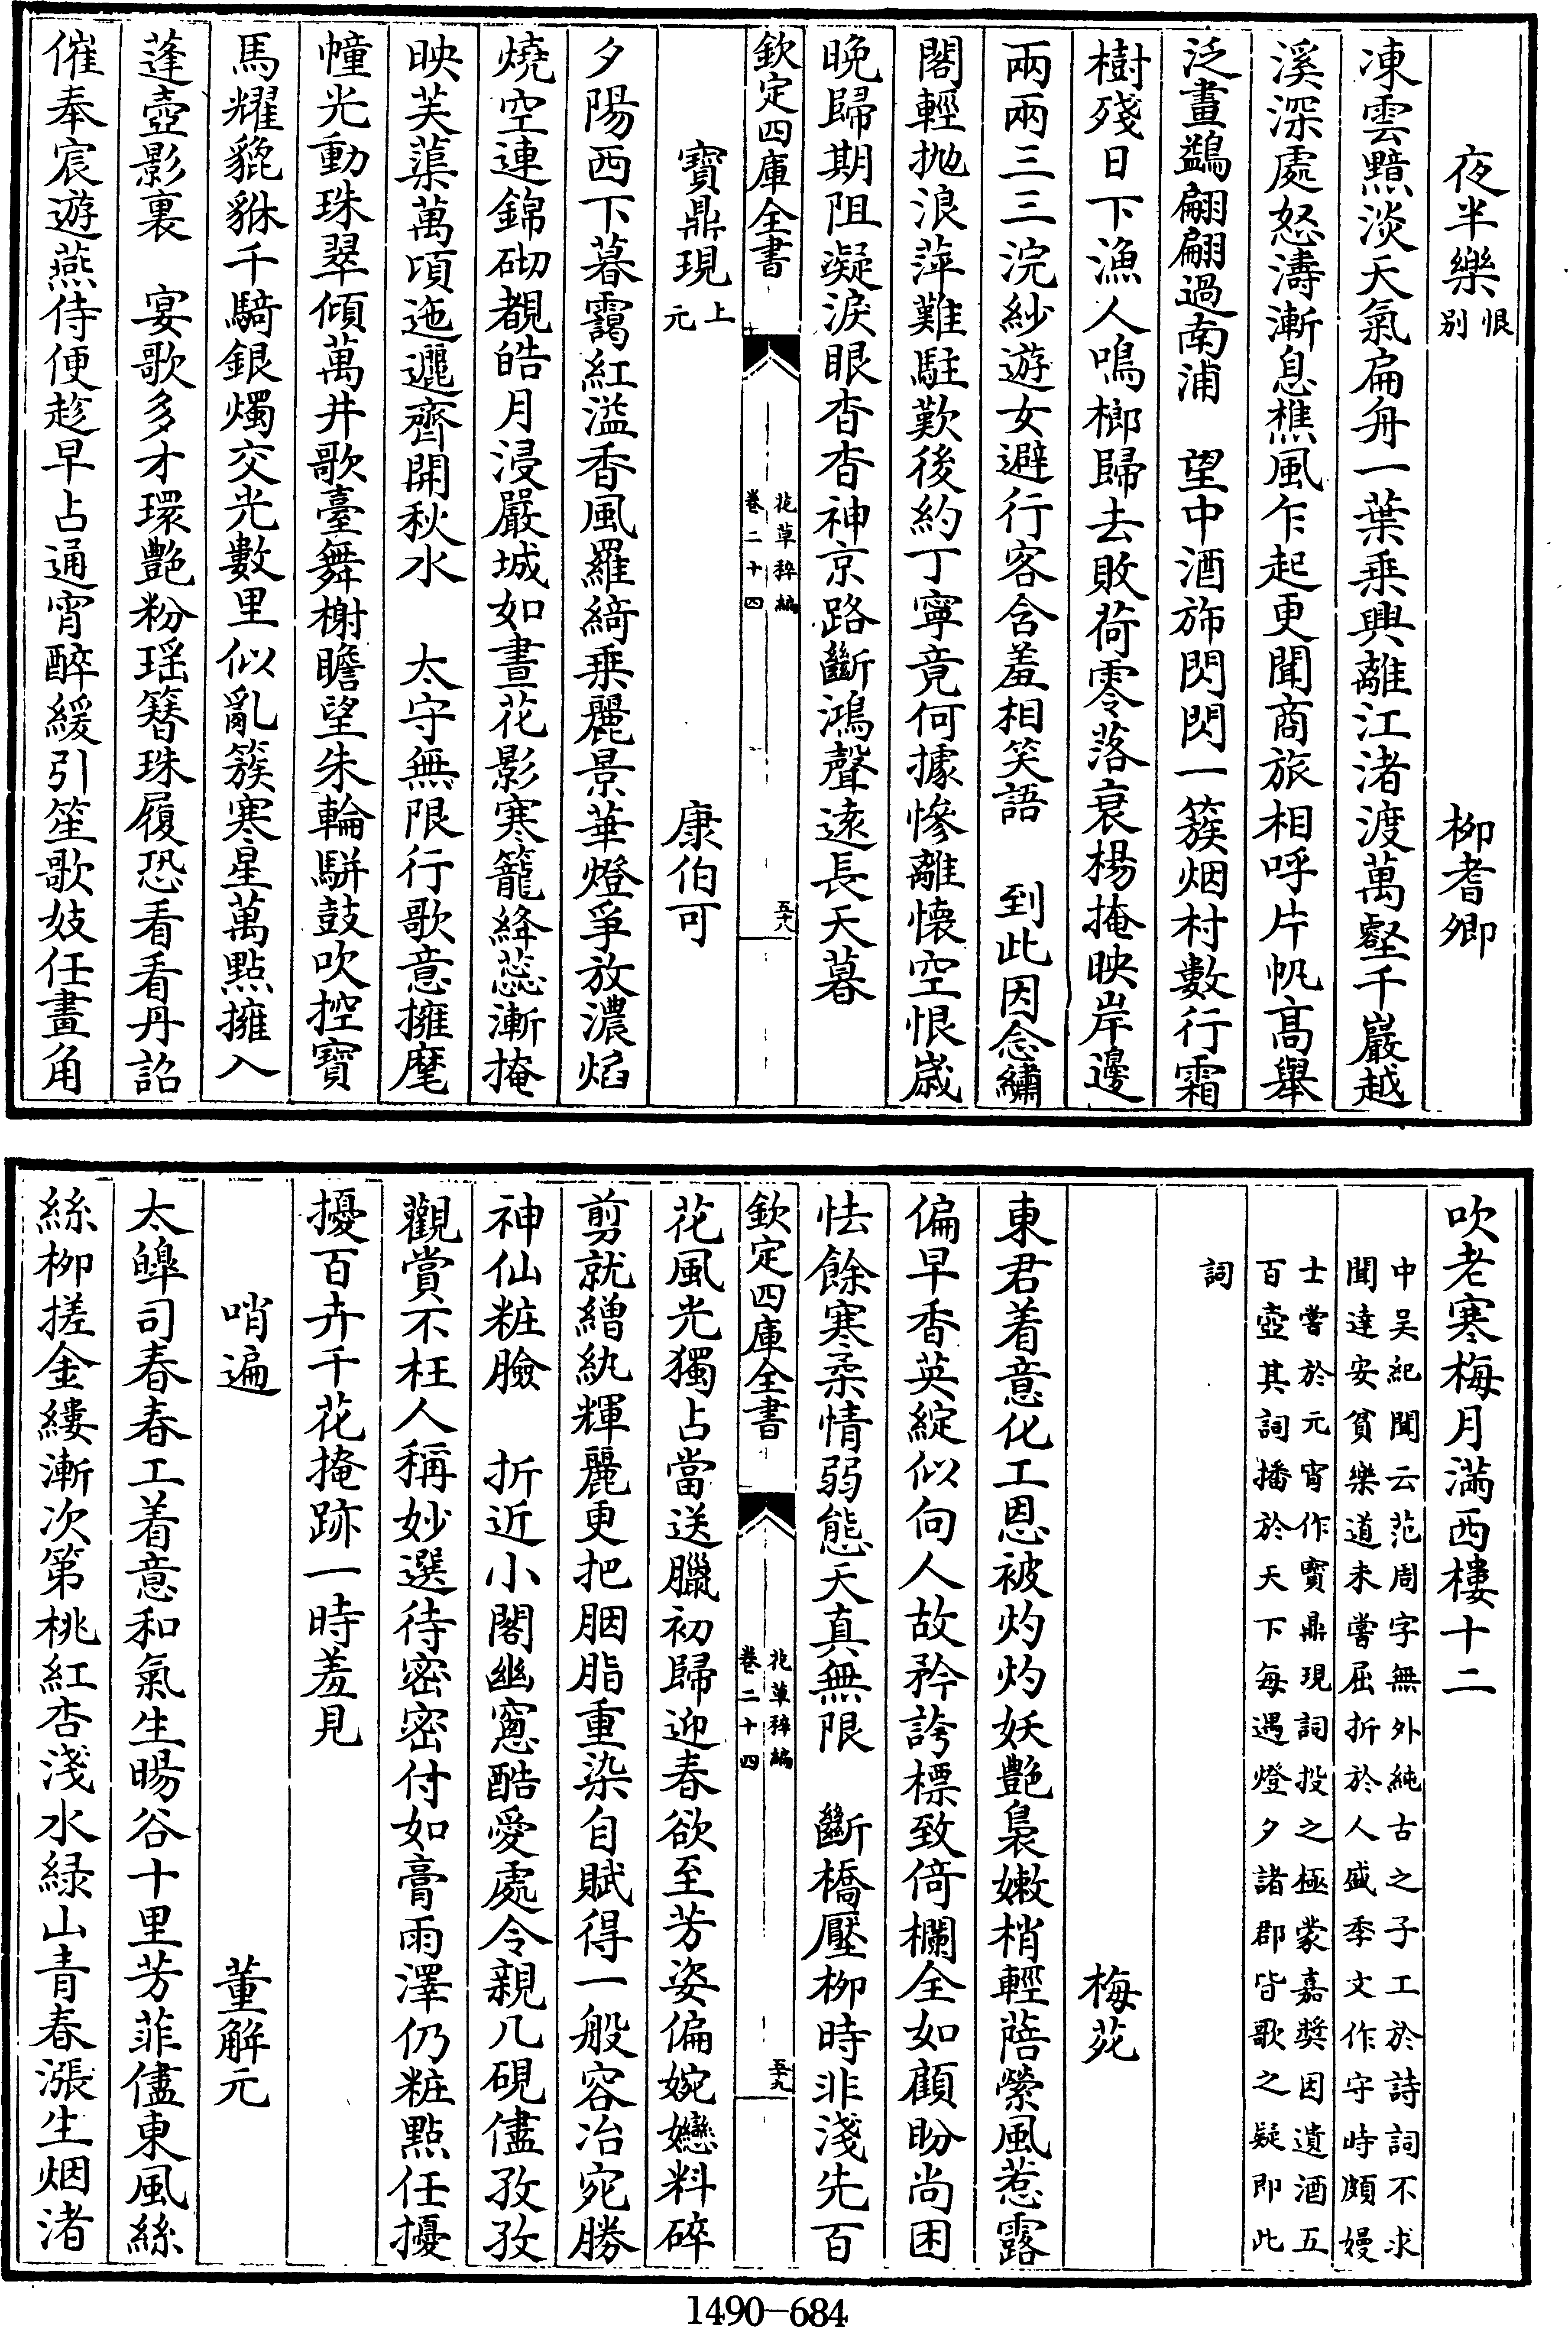 夜半樂 恨別 柳耆卿
凍雲黯淡天氣扁舟一葉乗興離江渚渡萬壑千巖越
溪深處怒濤漸息樵風乍起更聞商旅相呼片帆高舉
泛畫鷁翩翩過南浦 望中酒斾閃閃一簇烟村數行霜
樹殘日下漁人鳴榔歸去敗荷零落衰楊掩映岸邊
兩兩三三浣紗遊女避行客含羞相笑語 到此因念繡
閣輕抛浪萍難駐歎後約丁寧竟何據慘離懐空恨嵗
晩歸期阻凝淚眼杳杳神京路斷鴻聲逺長天暮
欽定四庫全書 花草稡編 卷二十四 五十八
寶鼎現 上元 康伯可
夕陽西下暮靄紅溢香風羅綺乗麗景華燈爭放濃焰
燒空連錦砌覩皓月浸嚴城如晝花影寒籠絳蕊漸掩
映芙蕖萬頃迤邐齊開秋水 太守無限行歌意擁麾
幢光動珠翠傾萬井歌臺舞榭瞻望朱輪駢鼓吹控寶
馬耀貔貅千騎銀燭交光數里似亂簇寒星萬點擁入
蓬壺影裏 宴歌多才環艶粉瑶簪珠履恐看看丹詔
催奉宸遊燕侍便趁早占通宵醉緩引笙歌妓任畫角
吹老寒梅月滿西樓十二
中吴紀聞云范周字無外純古之子工於詩詞不求
聞達安貧樂道未嘗屈折於人盛季文作守時頗嫚
士嘗於元宵作寳鼎現詞投之極蒙嘉奬因遺酒五
百壺其詞播於天下每遇燈夕諸郡皆歌之疑即此
詞
梅苑
東君着意化工恩被灼灼妖艶裊嫩梢輕蓓縈風惹露
偏早香英綻似向人故矜誇標致倚欄全如顧盼尚困
怯餘寒柔情弱態天真無限 斷橋壓柳時非淺先百
欽定四庫全書 花草稡編 卷二十四 五十九
花風光獨占當送臘初歸迎春欲至芳姿偏婉孌料碎
剪就繒紈輝麗更把胭脂重染自賦得一般容冶宛勝
神仙粧臉 折近小閣幽窻酷愛處令親几硯儘孜孜
觀賞不枉人稱妙選待密密付如膏雨澤仍粧點任擾
擾百卉千花掩跡一時羞見
哨遍 董解元
太皥司春春工着意和氣生暘谷十里芳菲儘東風絲
絲柳搓金縷漸次第桃紅杏淺水緑山青春漲生烟渚
1490—684